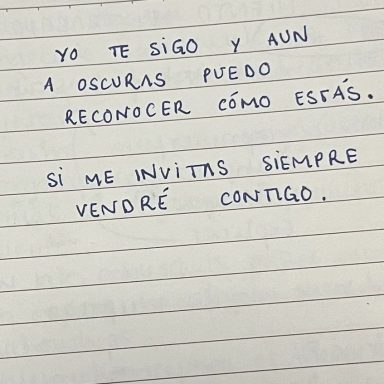 YO TE SIGO Y AUN
A OSCURAS PUEDO
RECONOCER CÓMO ESTÁS.
SI ME INVITAS SIEMPRE
VENDRÉ CONTIGO.